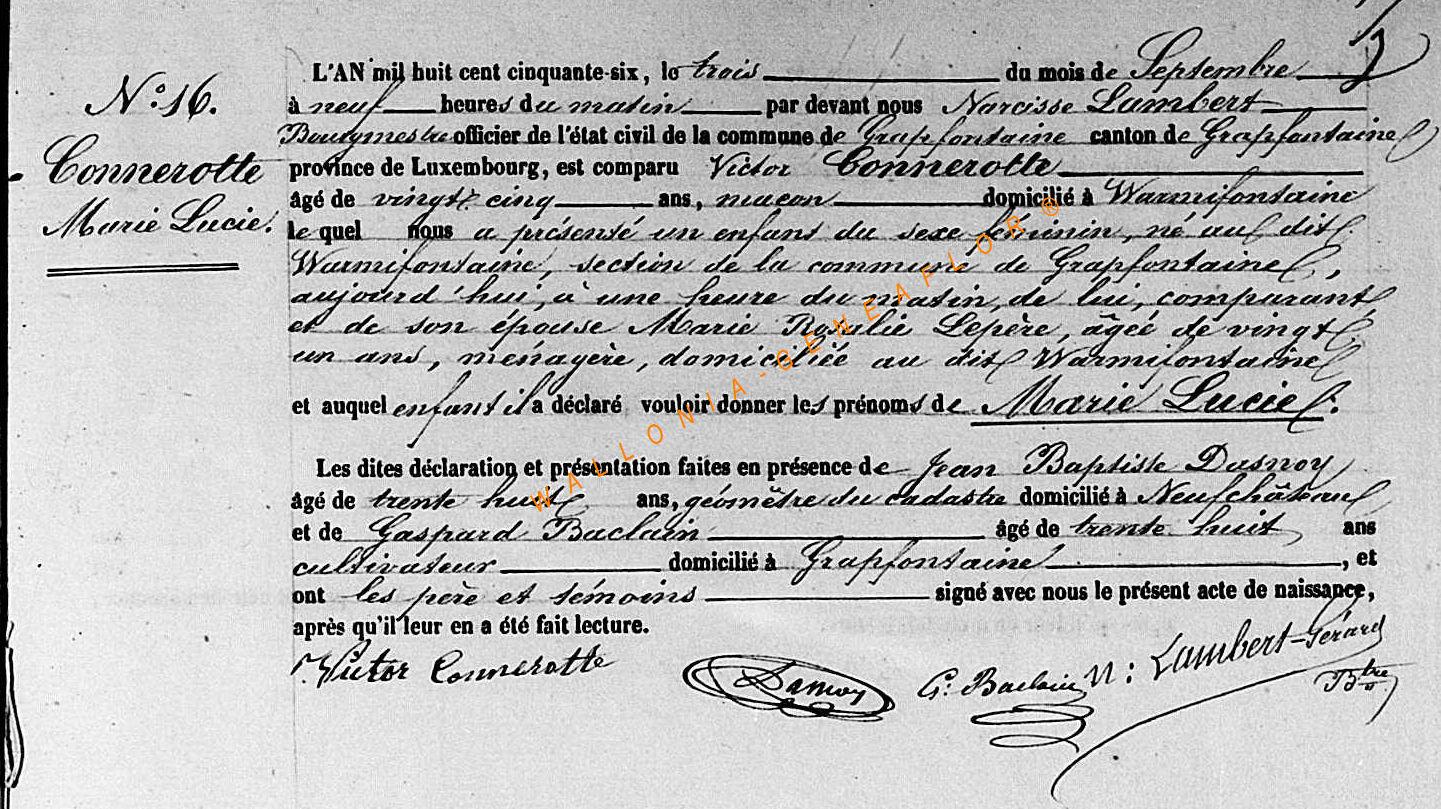 N.o 16.
Connerotte
Marie Lucie.
L'AN mil huit cent cinquante-six, le trois du mois de Septembre
à neuf heures du matin par devant nous Narcisse Lambert
Bourgmestre officier de l'état civil de la commune de Grapfontaine canton de Grapfontaine
province de Luxembourg, est comparu Victor Connerotte
âgé de vingt cinq ans, maçon domicilié à Warmifontaine
le quel nous a présenté un enfant du sexe féminin, né au dit
Warmifontaine, section de la commune de Grapfontaine,
aujourd'hui, à une heure du matin, de lui, comparant,
et de son épouse Marie Rosalie Lepère, âgée de vingt
un ans, ménagère, domiciliée au dit Warmifontaine
et auquel enfant il a déclaré vouloir donner les prénoms de Marie Lucie.
Les dites déclaration et présentation faites en présence de Jean Baptiste Dasnoy
âgé de trente huit ans, géomètre du cadastre domicilié à Neufchâteau
et de Gaspard Baclain âgé de trente huit ans
cultivateur domicilié à Grapfontaine, et
ont les père et témoins signé avec nous le présent acte de naissance,
après qu'il leur en a été fait lecture.
Victor Connerotte Dasnoy G. Baclain N: Lambert-Gérard
Btre
WALLONIA-GENEAFLOR ®